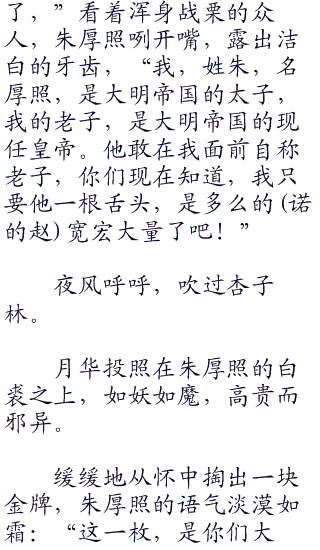 了，”看着浑身战栗的众
人，朱厚照咧开嘴，露出洁
白的牙齿，“我，姓朱，名
厚照，是大明帝国的太子，
我的老子，是大明帝国的现
任皇帝。他敢在我面前自称
老子，你们现在知道，我只
要他一根舌头，是多么的(诺
的赵)宽宏大量了吧！”
夜风呼呼，吹过杏子
林。
月华投照在朱厚照的白
裘之上，如妖如魔，高贵而
邪异。
缓缓地从怀中掏出一块
金牌，朱厚照的语气淡漠如
霜：“这一枚，是你们大